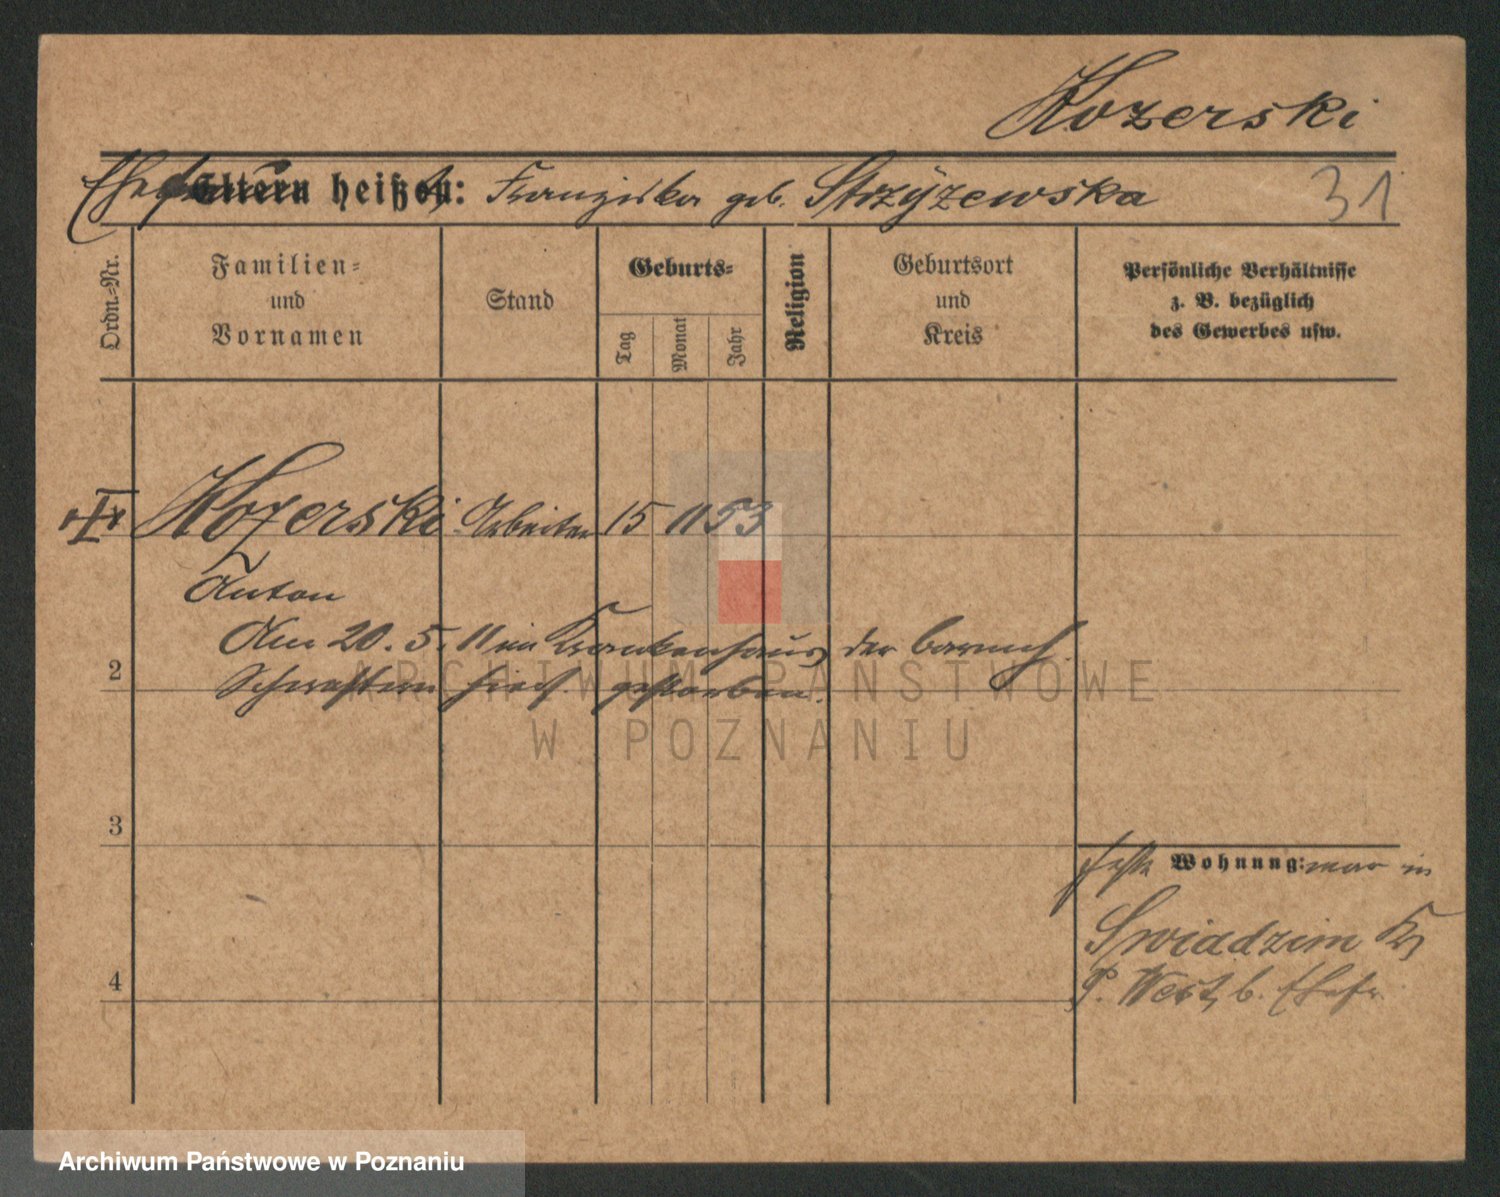 Kozerski
Ehefrau Eltern heißen: Franziska geb. Strzyżewska 31
Ordn.-Nr.
Familien-
und
Vornamen
Stand
Geburts-
Tag
Monat
Jahr
Religion
Geburtsort
und
Kreis
Persönliche Verhältnisse
z. B. bezüglich
des Gewerbes usw.
Kozerski Arbeiter 15 11 53
Anton
Am 20. 5. 11 im Krankenhaus der barmh.
2
Schwestern hies. gestorben.
3
feste Wohnung: war in
Swiadzim Kr
4
P. West, b. Ehefr.
ARCHIWUM PAŃSTWOWE
W POZNANIU
Archiwum Państwowe w Poznaniu